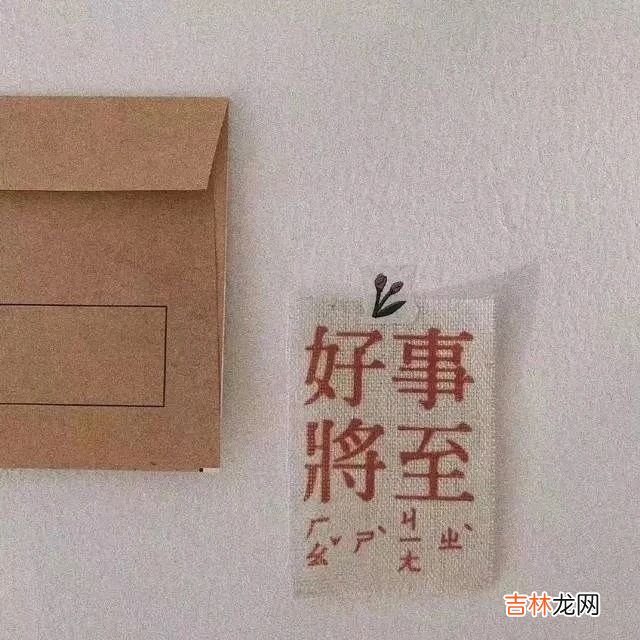 好事
將至
ㄏㄠˇ ㄕˋ ㄐㄧㄤ ㄓˋ
吉林龙网